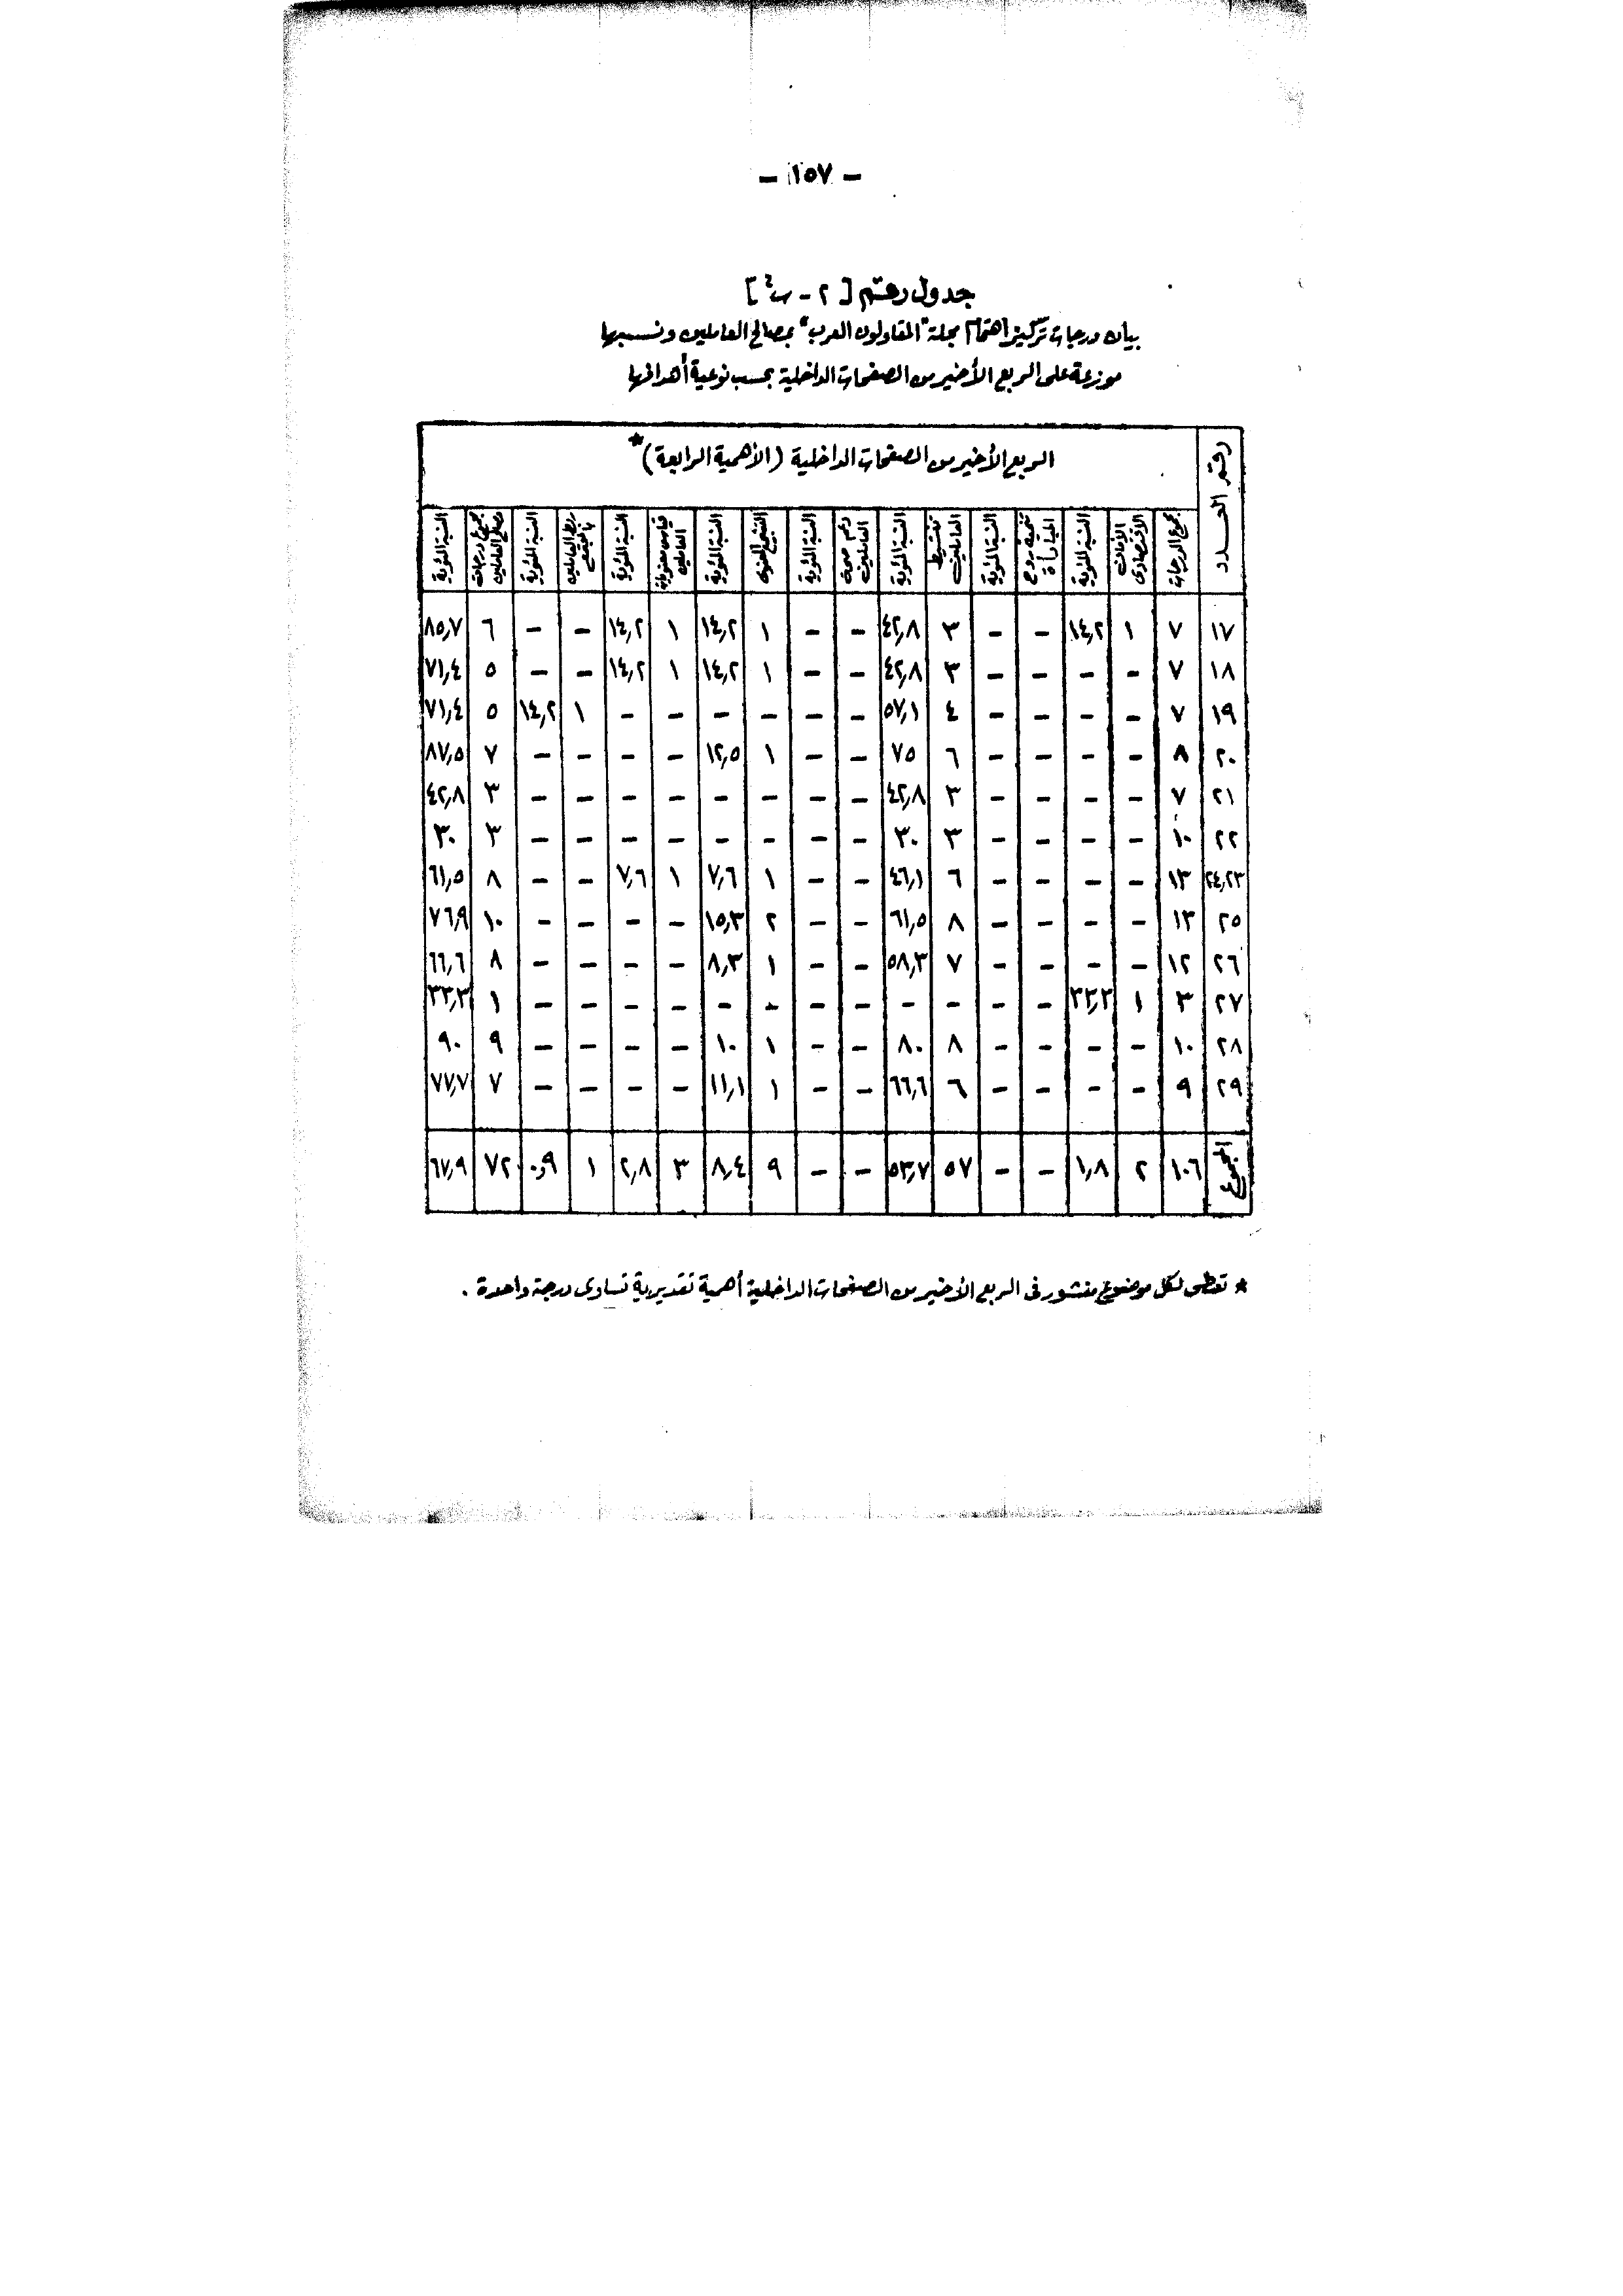 - ١٥٧ -
جدول رقم [ ٢ - ب٤ ]
بيان درجات تركيز اهتمام مجلة "المقاولون العرب" بمصالح العاملين ونسبها
موزعة على الربع الأخير من الصفحات الداخلية بحسب نوعية أهدافها
رقم العدد
الربع الأخير من الصفحات الداخلية (الأهمية الرابعة) *
مجموع الدرجات | الأمان الاقتصادى | النسبة المئوية | تنمية روح المبادأة | النسبة المئوية | تنشيط العاملين | النسبة المئوية | دعم صحة العاملين | النسبة المئوية | التشجيع المعنوى | النسبة المئوية | قياس معنويات العاملين | النسبة المئوية | ربط العاملين بالمجتمع | النسبة المئوية | مجموع درجات مصالح العاملين | النسبة المئوية
١٧ ٧ ١ ١٤,٢ - - ٣ ٤٢,٨ - - ١ ١٤,٢ ١ ١٤,٢ - - ٦ ٨٥,٧
١٨ ٧ - - - - ٣ ٤٢,٨ - - ١ ١٤,٢ ١ ١٤,٢ - - ٥ ٧١,٤
١٩ ٧ - - - - ٤ ٥٧,١ - - - - - - ١ ١٤,٢ ٥ ٧١,٤
٢٠ ٨ - - - - ٦ ٧٥ - - ١ ١٢,٥ - - - - ٧ ٨٧,٥
٢١ ٧ - - - - ٣ ٤٢,٨ - - - - - - - - ٣ ٤٢,٨
٢٢ ١٠ - - - - ٣ ٣٠ - - - - - - - - ٣ ٣٠
٢٤,٢٣ ١٣ - - - - ٦ ٤٦,١ - - ١ ٧,٦ ١ ٧,٦ - - ٨ ٦١,٥
٢٥ ١٣ - - - - ٨ ٦١,٥ - - ٢ ١٥,٣ - - - - ١٠ ٧٦,٩
٢٦ ١٢ - - - - ٧ ٥٨,٣ - - ١ ٨,٣ - - - - ٨ ٦٦,٦
٢٧ ٣ ١ ٣٣,٣ - - - - - - - - - - - - ١ ٣٣,٣
٢٨ ١٠ - - - - ٨ ٨٠ - - ١ ١٠ - - - - ٩ ٩٠
٢٩ ٩ - - - - ٦ ٦٦,٦ - - ١ ١١,١ - - - - ٧ ٧٧,٧
المجموع ١٠٦ ٢ ١,٨ - - ٥٧ ٥٣,٧ - - ٩ ٨,٤ ٣ ٢,٨ ١ ٠,٩ ٧٢ ٦٧,٩
* تعطى لكل موضوع منشور فى الربع الأخير من الصفحات الداخلية أهمية تقديرية تساوى درجة واحدة .